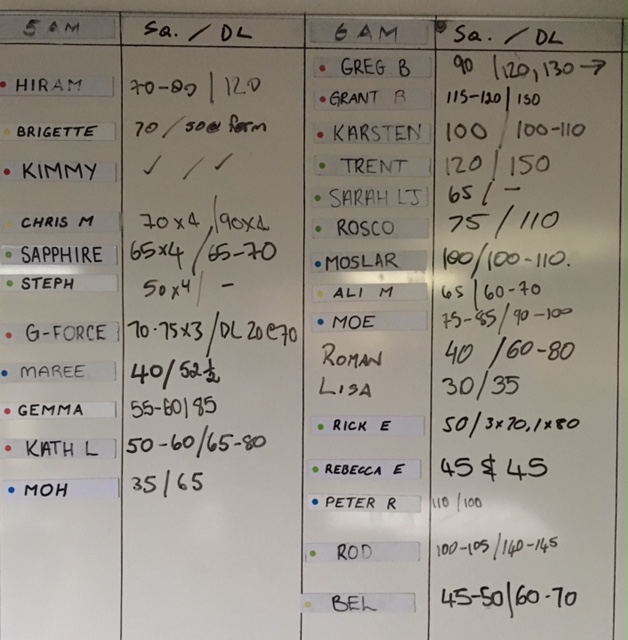 5 AM SQ. / DL
HIRAM 70-80 | 120
BRIGETTE 70 / 50@ form
KIMMY ✓ / ✓
CHRIS M 70x4 / 90x4
SAPPHIRE 65x4 / 65-70
STEPH 50x4 / -
G-FORCE 70-75x3 / DL 20@70
MAREE 40 / 52½
GEMMA 55-60 | 85
KATH L 50-60 / 65-80
MOH 35 | 65
6 AM SQ. / DL
GREG B 90 | 120, 130 →
GRANT B 115-120 | 150
KARSTEN 100 / 100-110
TRENT 120 | 150
SARAH LJ 65 / -
ROSCO 75 / 110
MOSLAR 100 / 100-110.
ALI M 65 | 60-70
MOE 75-85 / 90-100
ROMAN 40 / 60-80
LISA 30 / 35
RICK E 50 / 3x70, 1x80
REBECCA E 45 & 45
PETER R 110 / 100
ROD 100-105 / 140-145
BEL 45-50 | 60-70